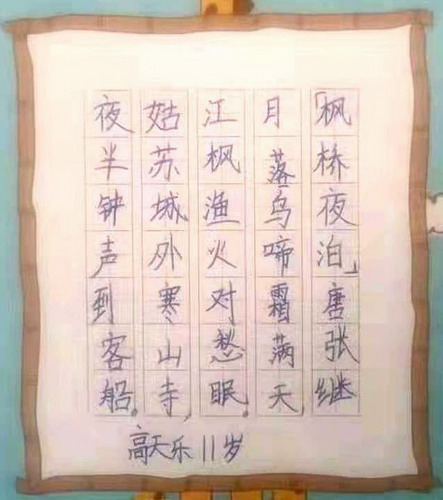 「枫桥夜泊」唐张继
月落乌啼霜满天，
江枫渔火对愁眠。
姑苏城外寒山寺，
夜半钟声到客船。
高天乐11岁